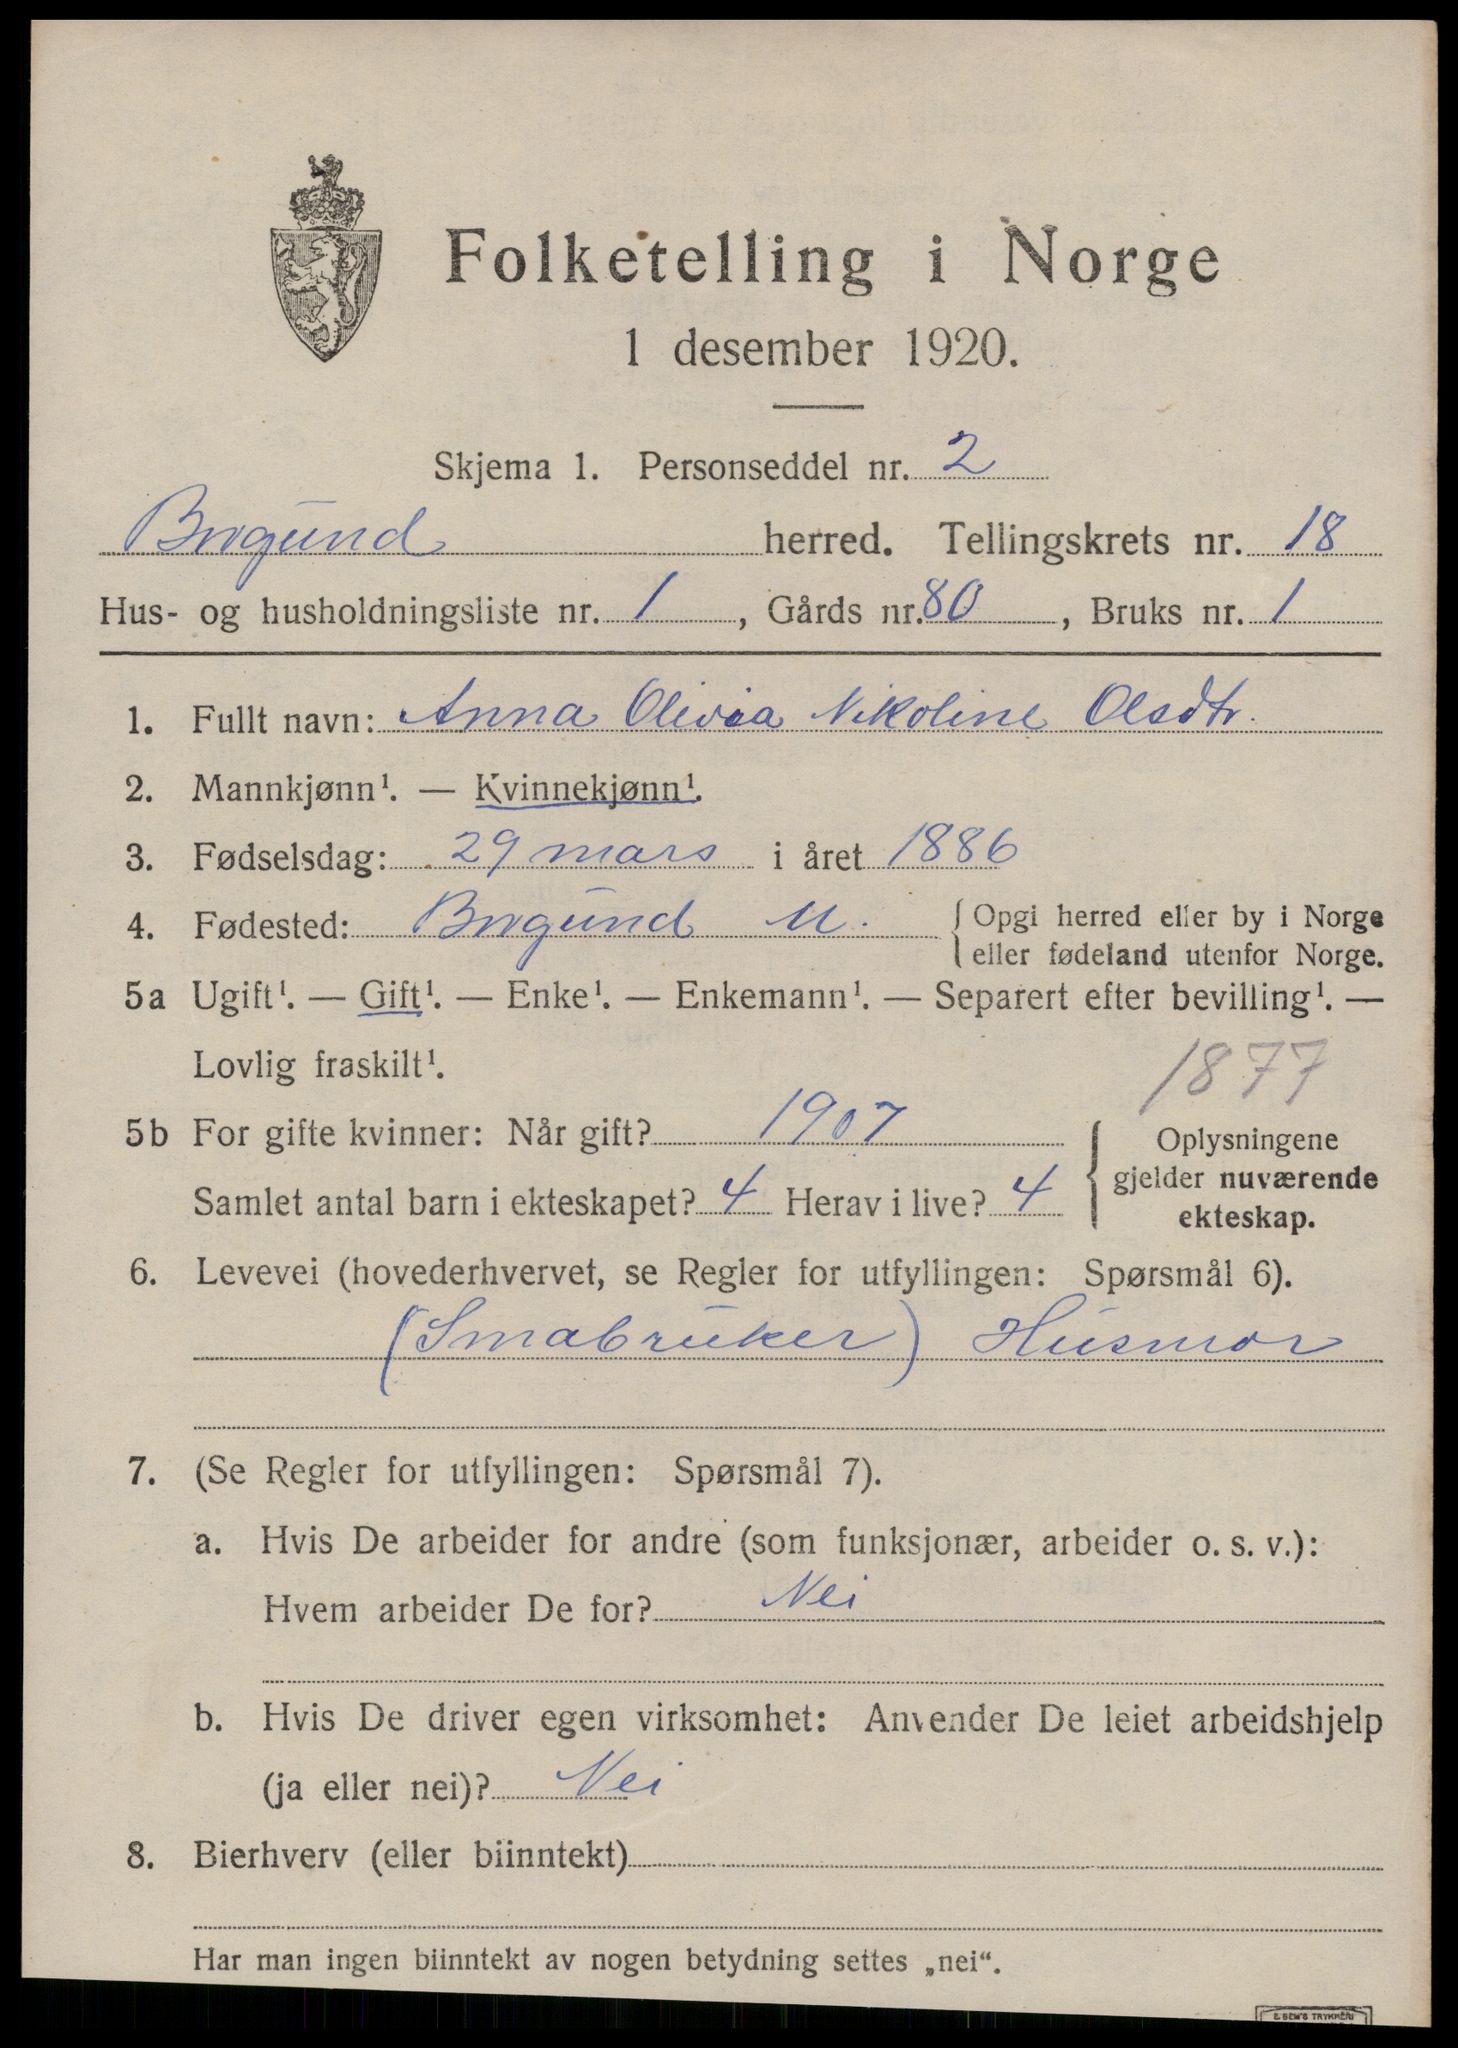 Folketelling i Norge
1 desember 1920.
Skjema 1. Personseddel nr. 2
Borgund herred. Tellingskrets nr. 18
Hus- og husholdningsliste nr. 1, Gårds nr. 80, Bruks nr. 1
1. Fullt navn: Anna Olivia Nikoline Olsdtr.
2. Mannkjønn¹. — Kvinnekjønn¹.
3. Fødselsdag: 29 mars i året 1886
4. Fødested: Borgund M. { Opgi herred eller by i Norge
eller fødeland utenfor Norge.
5a Ugift¹. — Gift¹. — Enke¹. — Enkemann¹. — Separert efter bevilling¹. —
Lovlig fraskilt¹.
1877
5b For gifte kvinner: Når gift? 1907
Samlet antal barn i ekteskapet? 4 Herav i live? 4
{ Oplysningene
gjelder nuværende
ekteskap.
6. Levevei (hovederhvervet, se Regler for utfyllingen: Spørsmål 6).
(Smabruker) Husmor
7. (Se Regler for utfyllingen: Spørsmål 7).
a. Hvis De arbeider for andre (som funksjonær, arbeider o. s. v.):
Hvem arbeider De for? Nei
b. Hvis De driver egen virksomhet: Anvender De leiet arbeidshjelp
(ja eller nei)? Nei
8. Bierhverv (eller biinntekt)
Har man ingen biinntekt av nogen betydning settes „nei“.